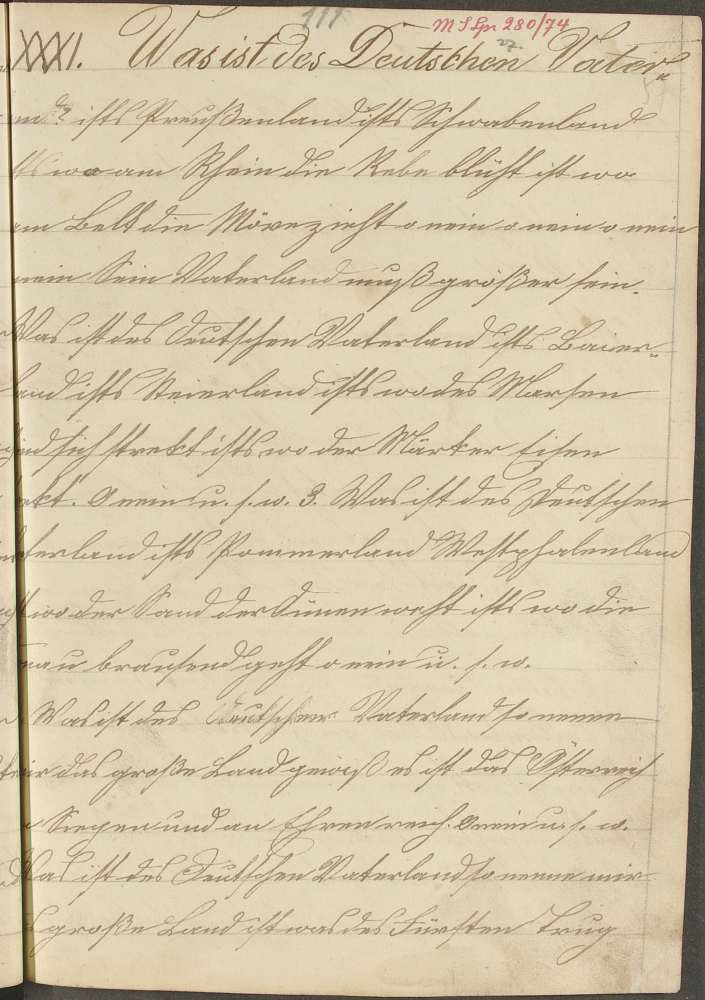 117
M S Spr 280/74
27
XXXI. Was ist des Deutschen Vater„
and? ists Preußenland ists Schwabenland
ists wo am Rhein die Rebe blüht ist wo
am Belt die Möve zieht o nein o nein o nein
nein Sein Vaterland muß größer sein.
Was ist des Deutschen Vaterland ists Baier„
land ists Steierland ists wo des Marsen
ind sich strekt ists wo der Märker Eisen
rekt. O nein u. s. w. 3. Was ist des Deutschen
Vaterland ists Pommerland Westphalenland
ist wo der Sand der Dünen weht ists wo die
nau brausend geht o nein u. s. w.
Was ist des Deutschen Vaterland so nenne
mir das große Land gewiß es ist das Österreich
Siegen und an Ehren reich. O nein u. s. w.
Was ist des Deutschen Vaterland so nenne mir
große Land ist was des Fürsten Trug